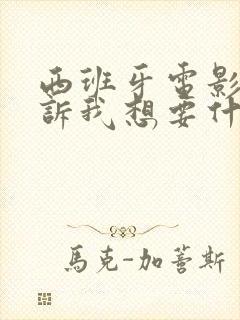 西班牙電影
訴我想要什
馬克-加蒂斯